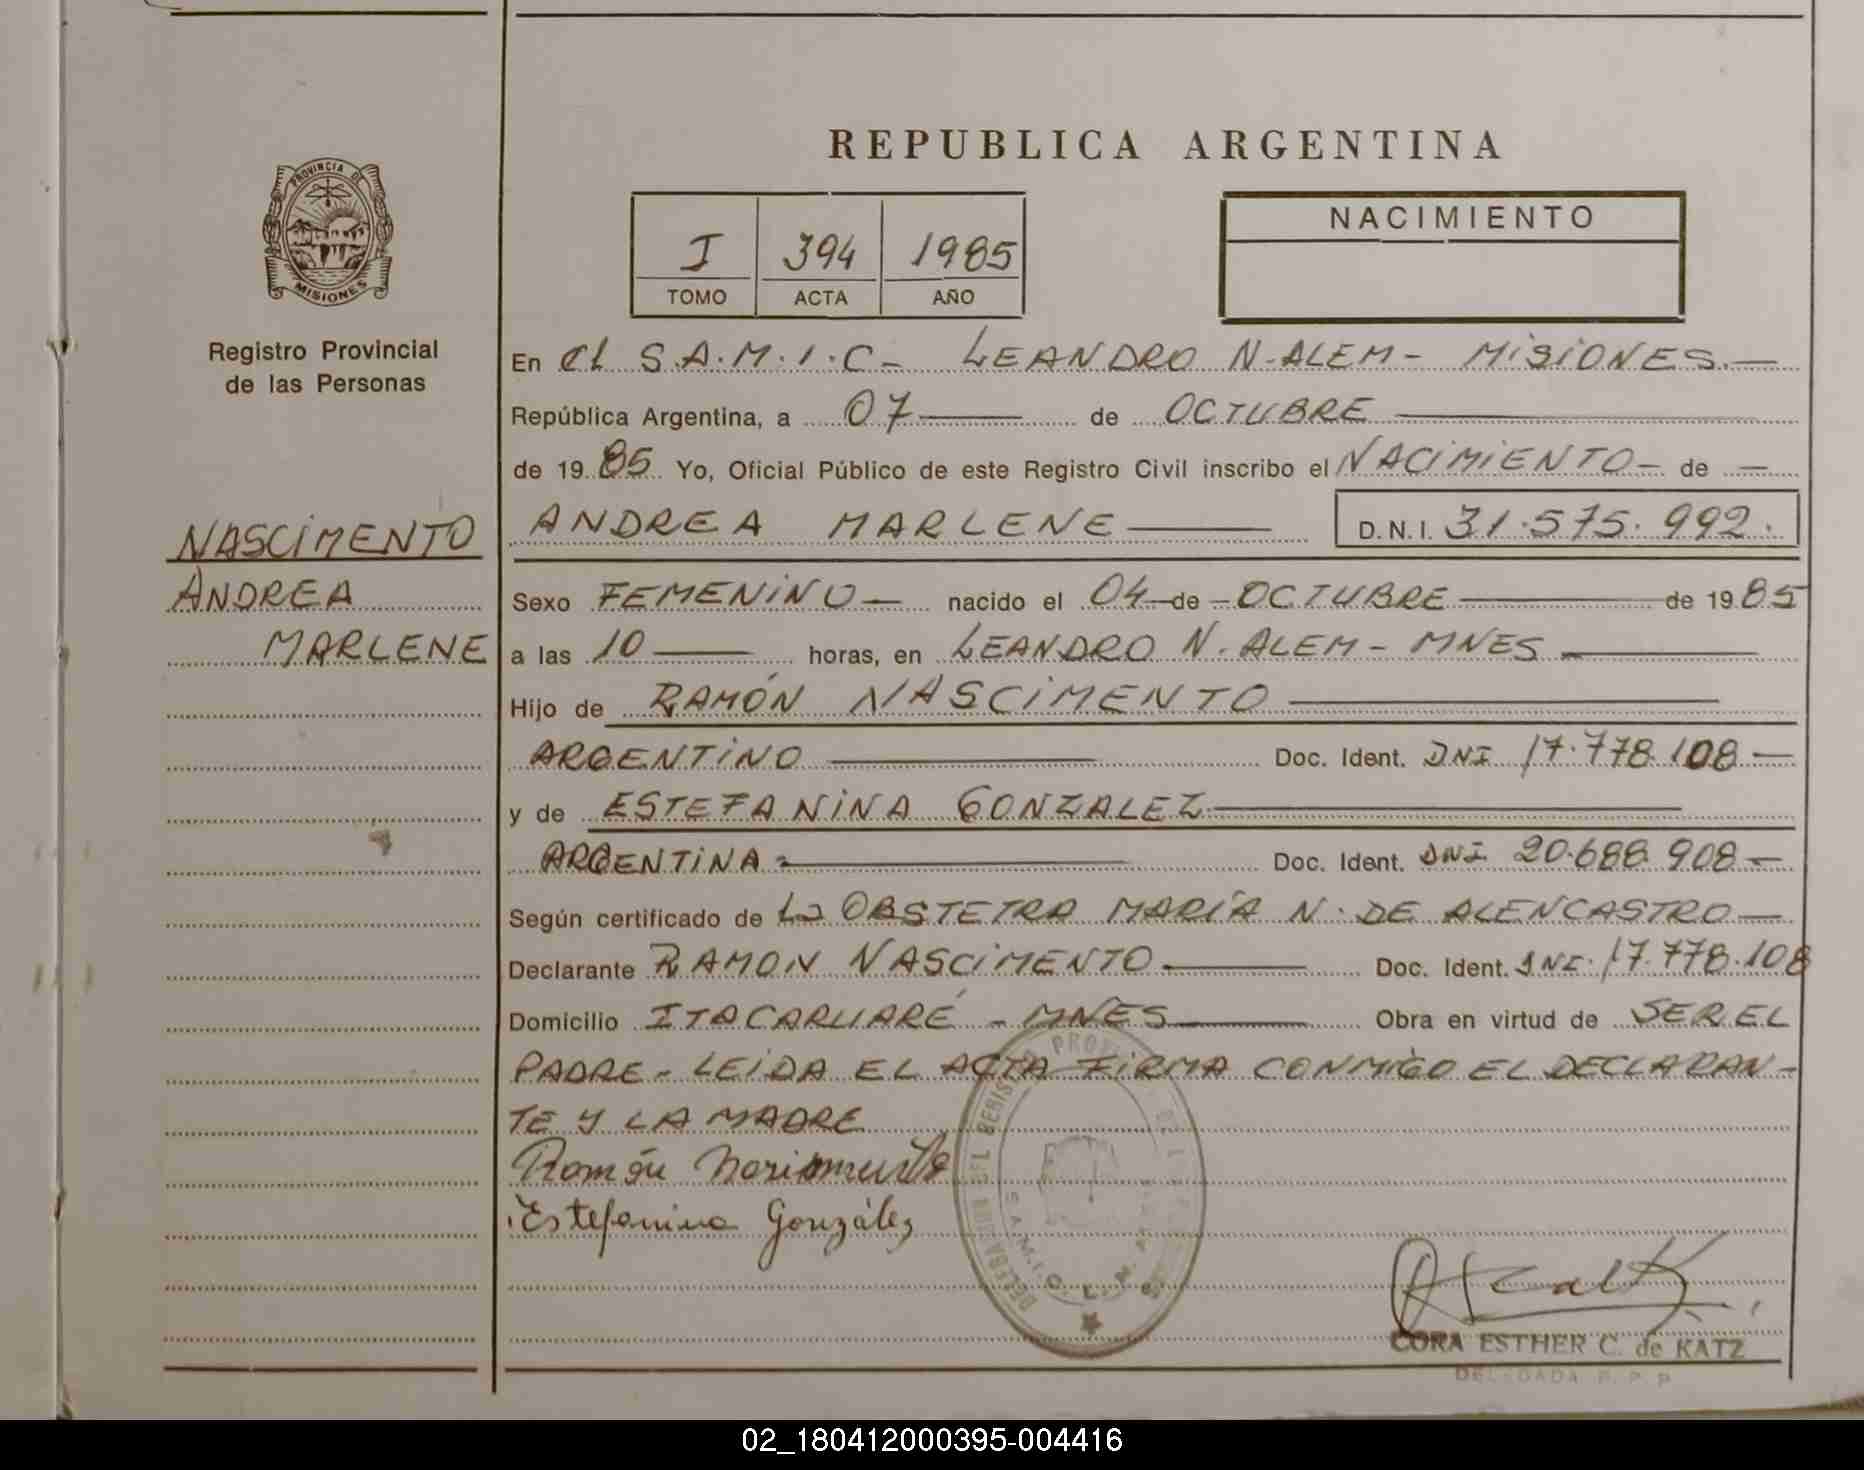 REPUBLICA ARGENTINA
PROVINCIA DE
MISIONES
I 394 1985
TOMO ACTA AÑO
NACIMIENTO
Registro Provincial
de las Personas
NASCIMENTO
ANDREA
MARLENE
En el S.A.M.I.C- LEANDRO N-ALEM- MISIONES.—
República Argentina, a 07— de OCTUBRE—
de 19 85 Yo, Oficial Público de este Registro Civil inscribo el NACIMIENTO- de —
ANDREA MARLENE— D.N.I. 31.575.992.
Sexo FEMENINO— nacido el 04-de-OCTUBRE— de 19 85
a las 10— horas, en LEANDRO N. ALEM- MNES—
Hijo de RAMÓN NASCIMENTO—
ARGENTINO— Doc. Ident. DNI 17.778.108—
y de ESTEFANINA GONZALEZ—
ARGENTINA— Doc. Ident. DNI 20.688.908—
Según certificado de La OBSTETRA MARÍA N. DE ALENCASTRO—
Declarante RAMON NASCIMENTO— Doc. Ident. DNI. 17.778.108
Domicilio ITACARUARÉ - MNES— Obra en virtud de SER EL
PADRE- LEIDA EL ACTA FIRMA CONMIGO EL DECLARAN-
TE Y LA MADRE
Ramón Nascimento
Estefanina González
CORA ESTHER C. de KATZ
DELEGADA R. P. P
02_180412000395-004416